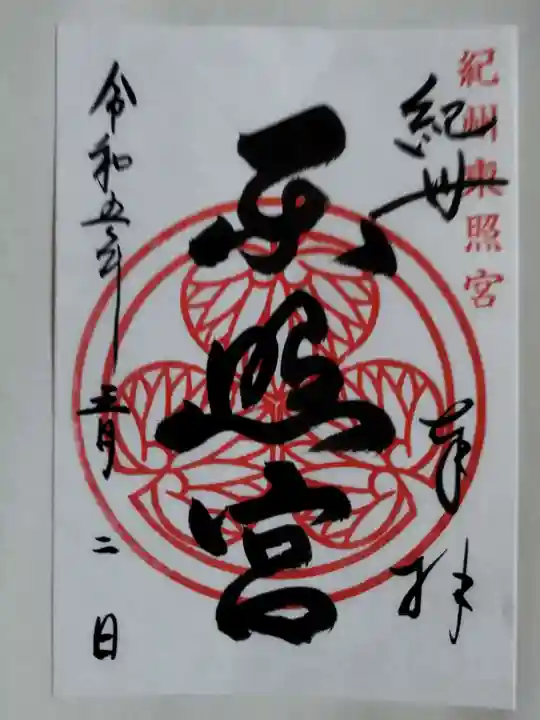 紀州東照宮
紀州
奉拝
東照宮
令和五年
三月二日